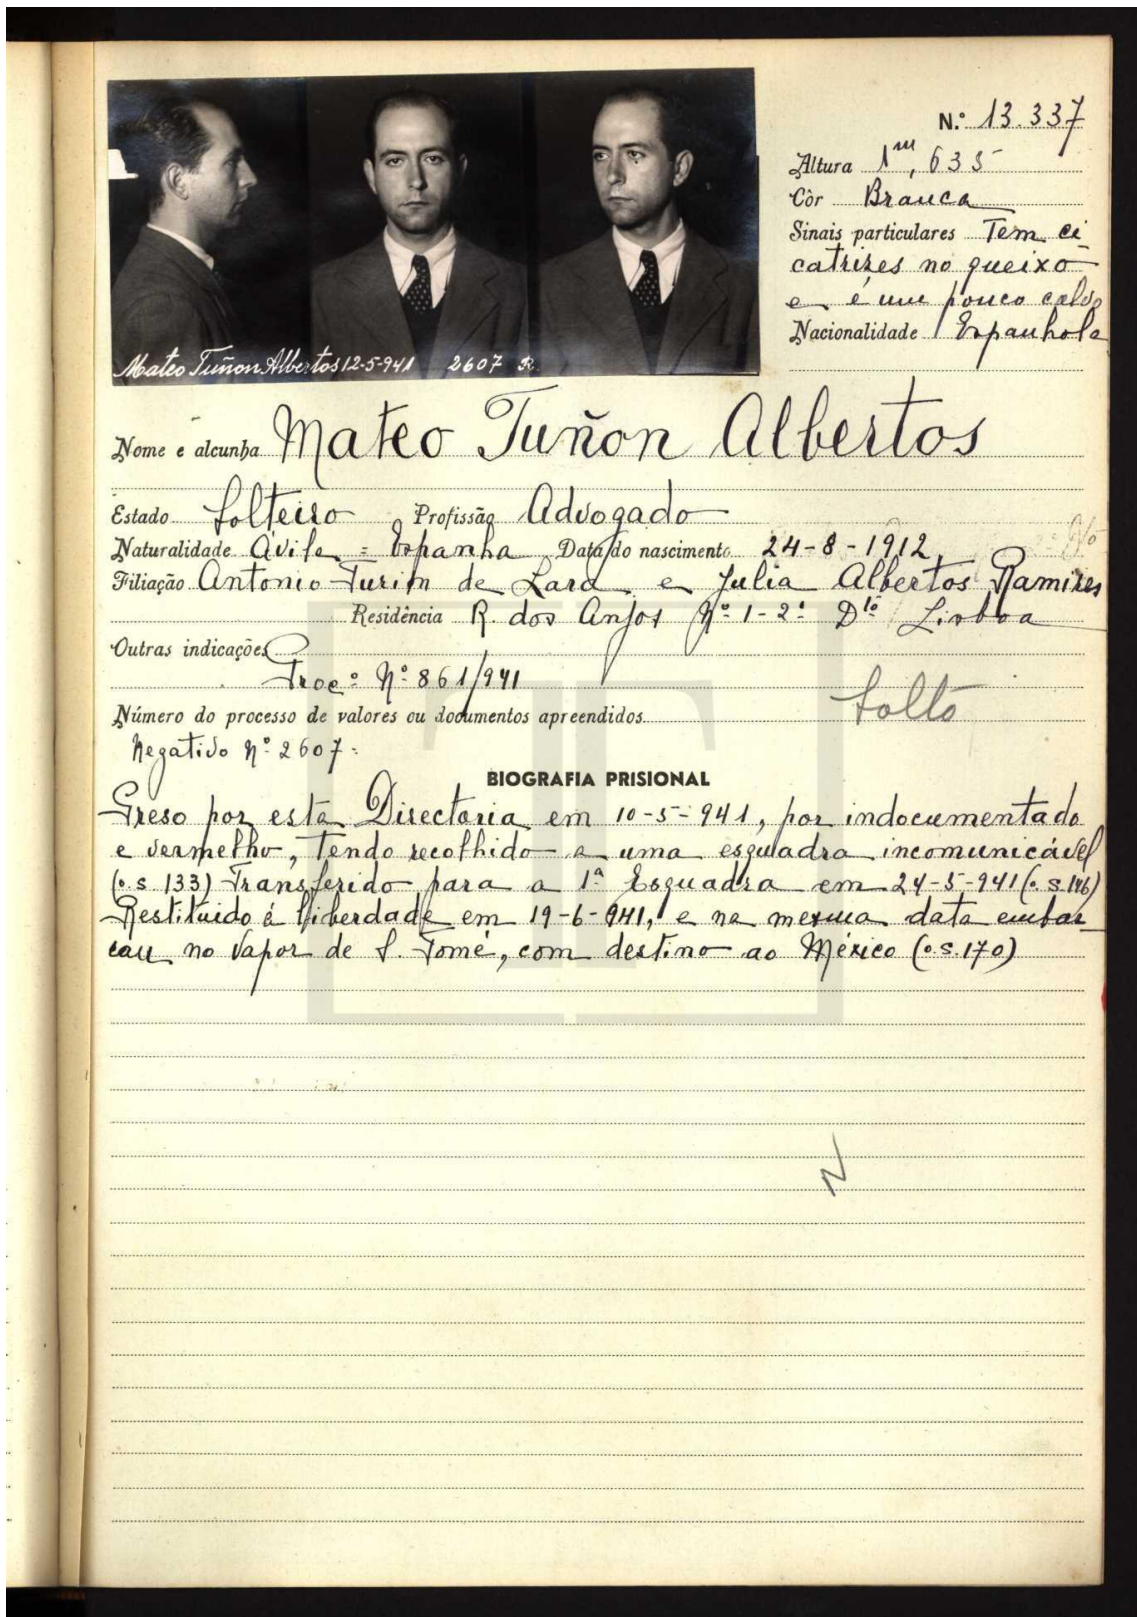 N.º 13.337
Altura 1m,635
Côr Branca
Sinais particulares Tem ci
catrizes no queixo
e é um pouco calvo
Nacionalidade Espanhola
Mateo Tuñon Albertos 12-5-941 2607 R
Nome e alcunha Mateo Tuñon Albertos
Estado Solteiro Profissão Advogado
Naturalidade Ávila = Espanha Data do nascimento 24-8-1912
Filiação Antonio de Lara e Julia Albertos Ramires
Residência R. dos Anjos Nº 1-2º Dtº Lisboa
Outras indicações
Procº Nº 861/941
Solto
Número do processo de valores ou documentos apreendidos
Negativo Nº 2607=
BIOGRAFIA PRISIONAL
Preso por esta Directoria em 10-5-941, por indocumentado
e vermelho, tendo recolhido a uma esquadra incomunicável
(o.s 133) Transferido para a 1ª Esquadra em 24-5-941 (o.s.146)
Restituido é liberdade em 19-6-941, e na mesma data embar
cau no vapor de S. Tomé, com destino ao México (o.s.170)